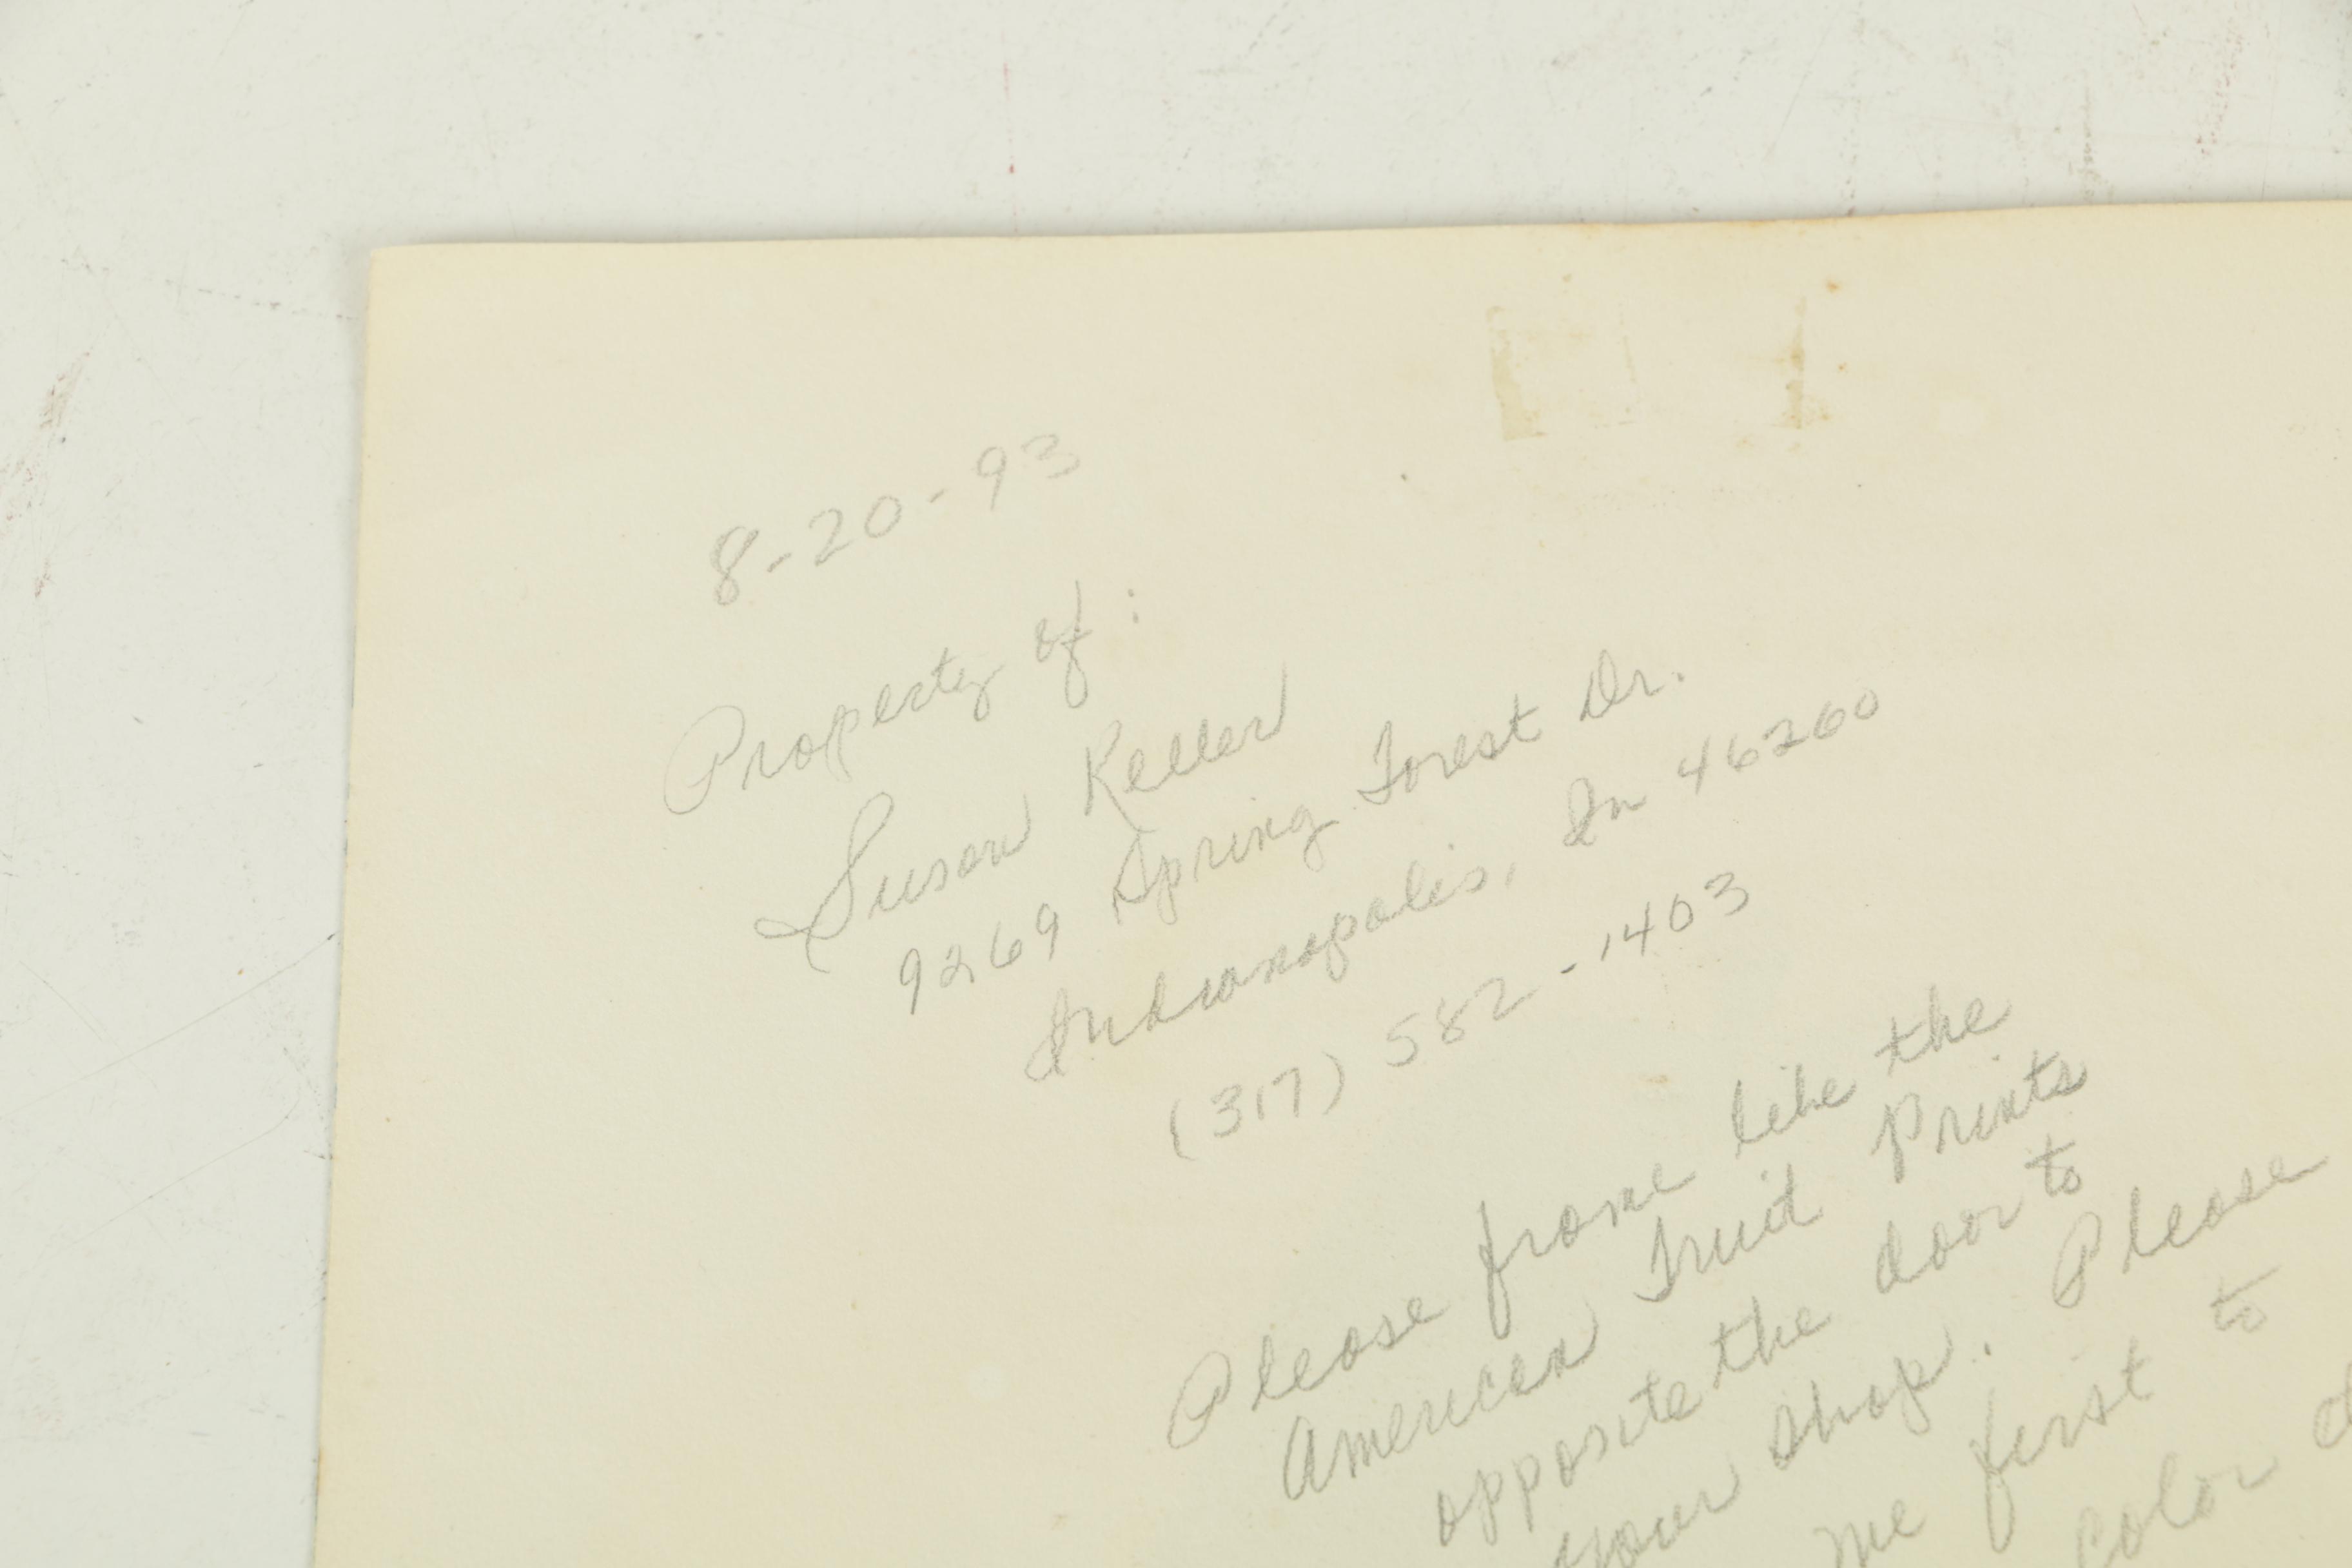 8-20-93
Property of:
Susan Keller
9269 Spring Forest Dr.
Indianapolis, In 46260
(317) 582-1403
Please frame like the
American Fruit Prints
opposite the door to
your shop. Please
me first to
color